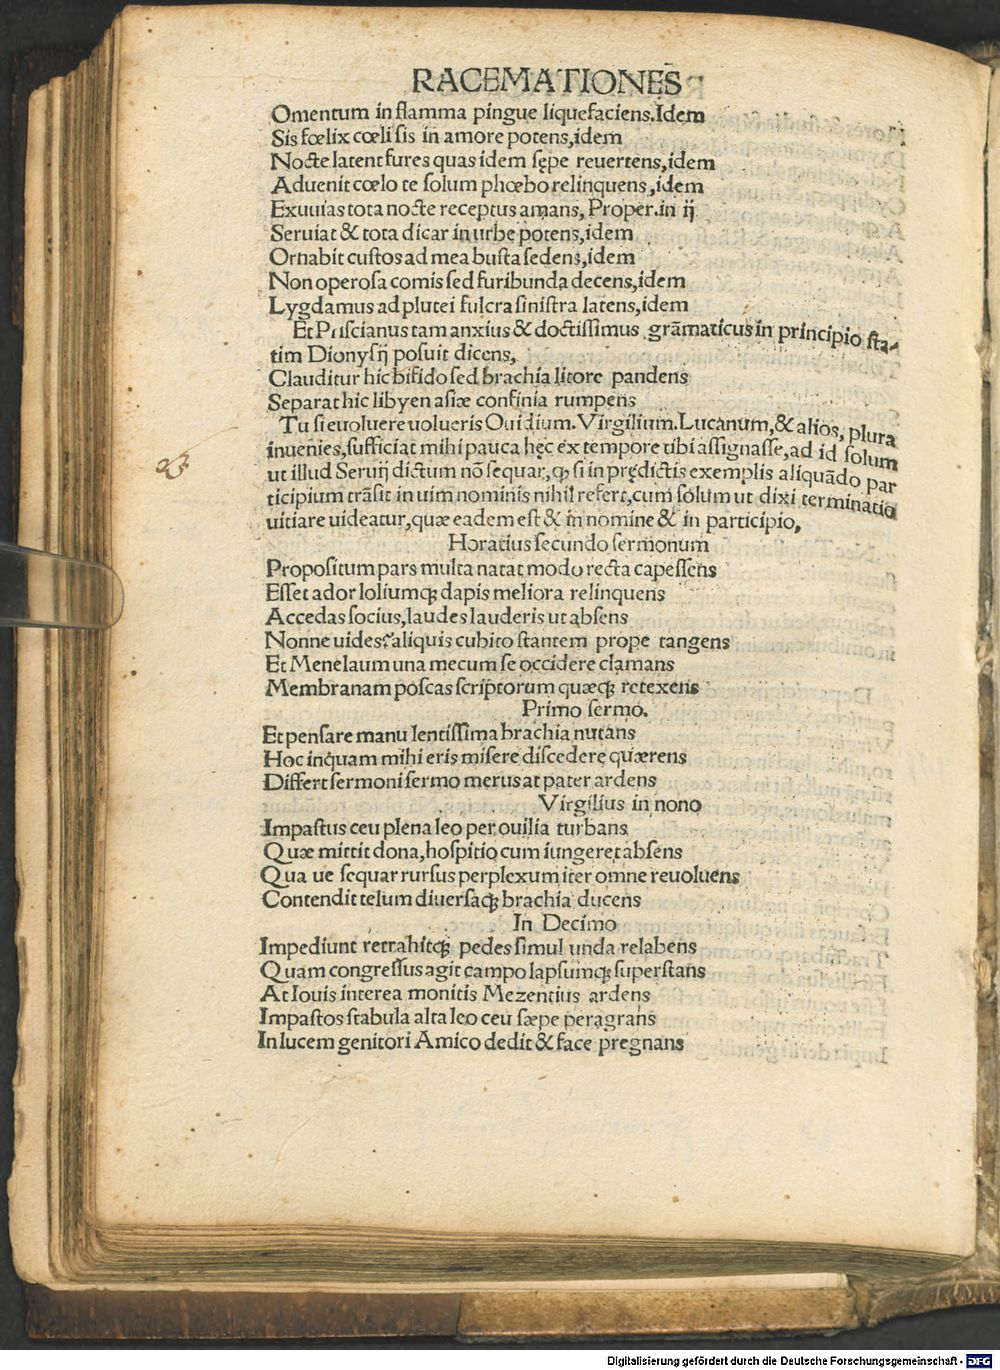 RACEMATIONES
Omentum in flamma pingue liquefaciens.Idem
Sis fœlix cœli sis in amore potens,idem
Nocte latent fures quas idem sępe reuertens,idem
Aduenit cœlo te solum phœbo relinquens,idem
Exuuias tota nocte receptus amans, Proper.in ij
Seruiat & tota dicar in urbe potens,idem
Ornabit custos ad mea busta sedens,idem
Non operosa comis sed furibunda decens,idem
Lygdamus ad plutei fulcra sinistra latens,idem
Et Priscianus tam anxius & doctissimus grãmaticus in principio sta-
tim Dionysij posuit dicens,
Clauditur hic bifido sed brachia litore pandens
Separat hic libyen asiæ confinia rumpens
Tu si euoluere uolueris Ouidium.Virgilium.Lucanum,& alios, plura
inuenies,sufficiat mihi pauca hęc ex tempore tibi assignasse,ad id solum
ut illud Seruij dictum nõ sequar,ꝙ si in prędictis exemplis aliquãdo par
ticipium trãsit in uim nominis nihil refert,cum solum ut dixi terminatio
uitiare uideatur,quæ eadem est & in nomine & in participio,
Horatius secundo sermonum
Propositum pars multa natat modo recta capessens
Esset ador loliumqꝫ dapis meliora relinquens
Accedas socius,laudes lauderis ut absens
Nonne uides?aliquis cubito stantem prope tangens
Et Menelaum una mecum se occidere clamans
Membranam poscas scriptorum quæqꝫ retexens
Primo sermo.
Et pensare manu lentissima brachia nutans
Hoc inquam mihi eris misere discedere quærens
Differt sermoni sermo merus at pater ardens
Virgilius in nono
Impastus ceu plena leo per ouilia turbans
Quæ mittit dona,hospitio cum iungeret absens
Qua ue sequar rursus perplexum iter omne reuoluens
Contendit telum diuersaqꝫ brachia ducens
In Decimo
Impediunt retrahitqꝫ pedes simul unda relabens
Quam congressus agit campo lapsumqꝫ superstans
At Iouis interea monitis Mezentius ardens
Impastos stabula alta leo ceu sæpe peragrans
In lucem genitori Amico dedit & face pregnans
Digitalisierung gefördert durch die Deutsche Forschungsgemeinschaft - DFG